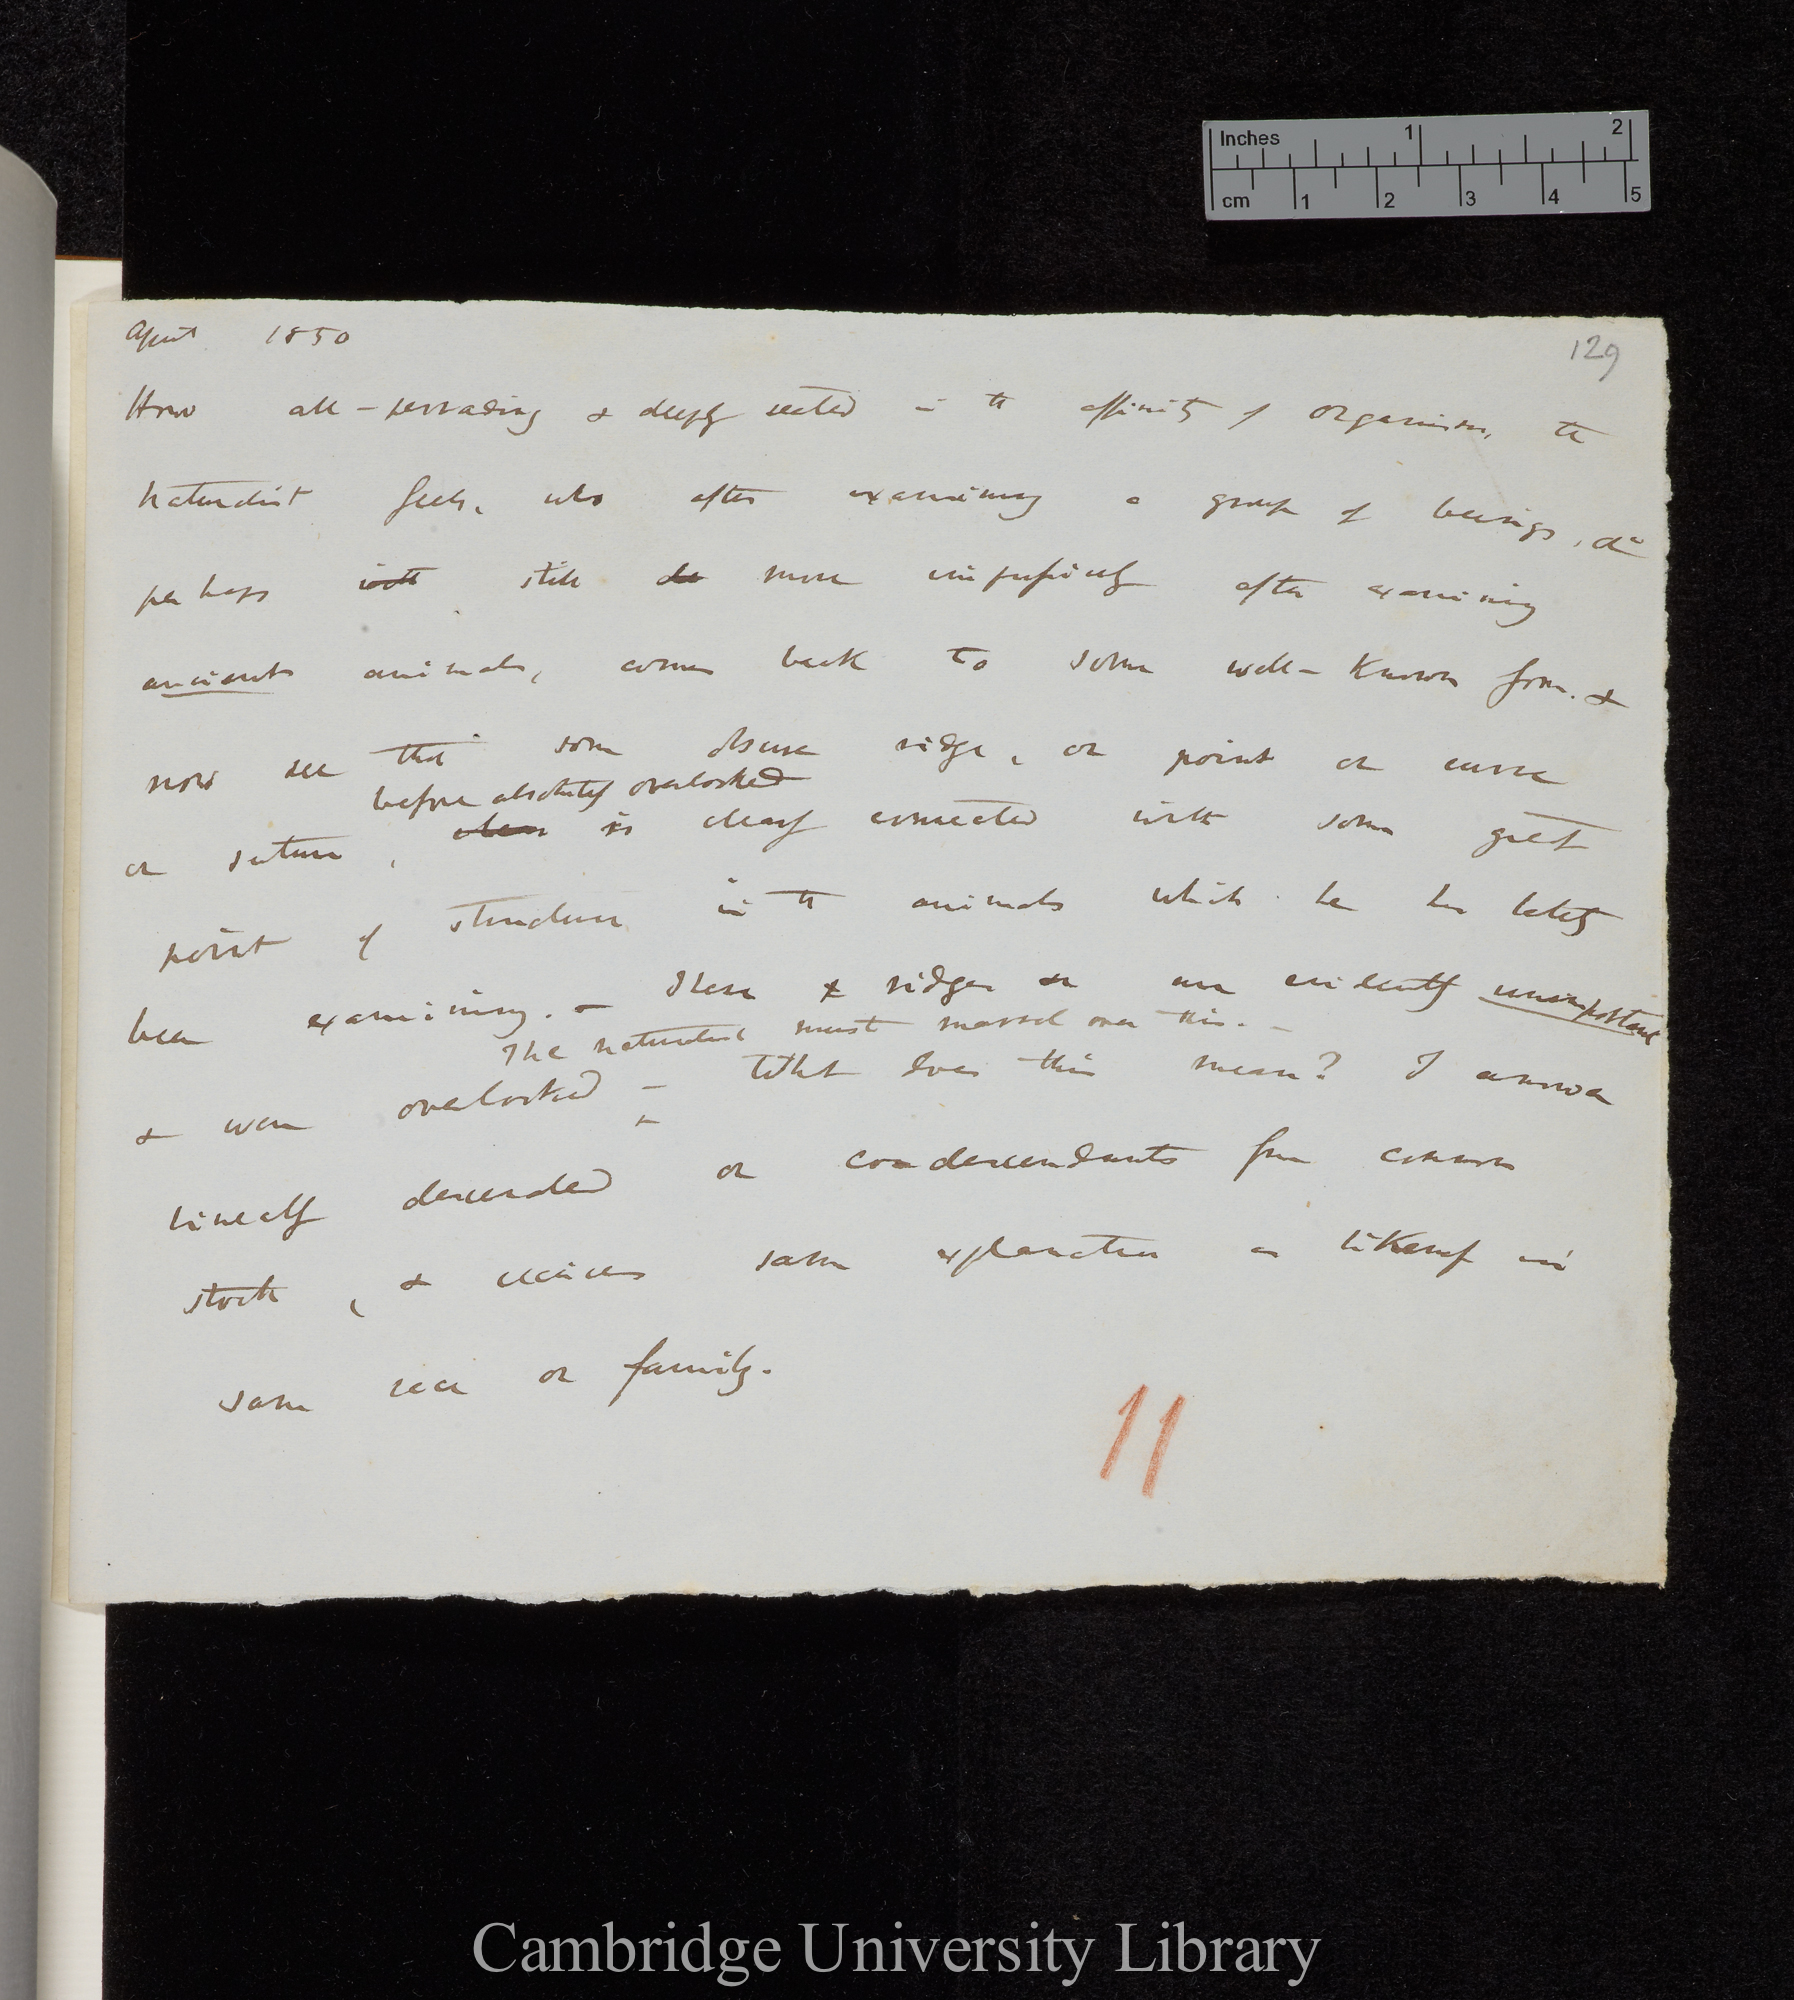 Inches 1 2
cm 1 2 3 4 5
April 1850
129
How all-pervading & deeply seated is the affinity of organisms, the
naturalist feels, who after examining a group of beings, &
perhaps with still more surprisingly after examining
ancient animals, comes back to some well-known form. &
now see that some obscure ridge, or point or curve
before absolutely overlooked
or suture, is clearly connected with some great
point of structure in the animals which he has lately
been examining. – These ridges &c are evidently unimportant
The naturalist must marvel over this. –
& were overlooked – What does this mean? I answer
lineally descended or co-descendants from common
stock, & receives same explanation as likeness in
same race or family.
11
Cambridge University Library